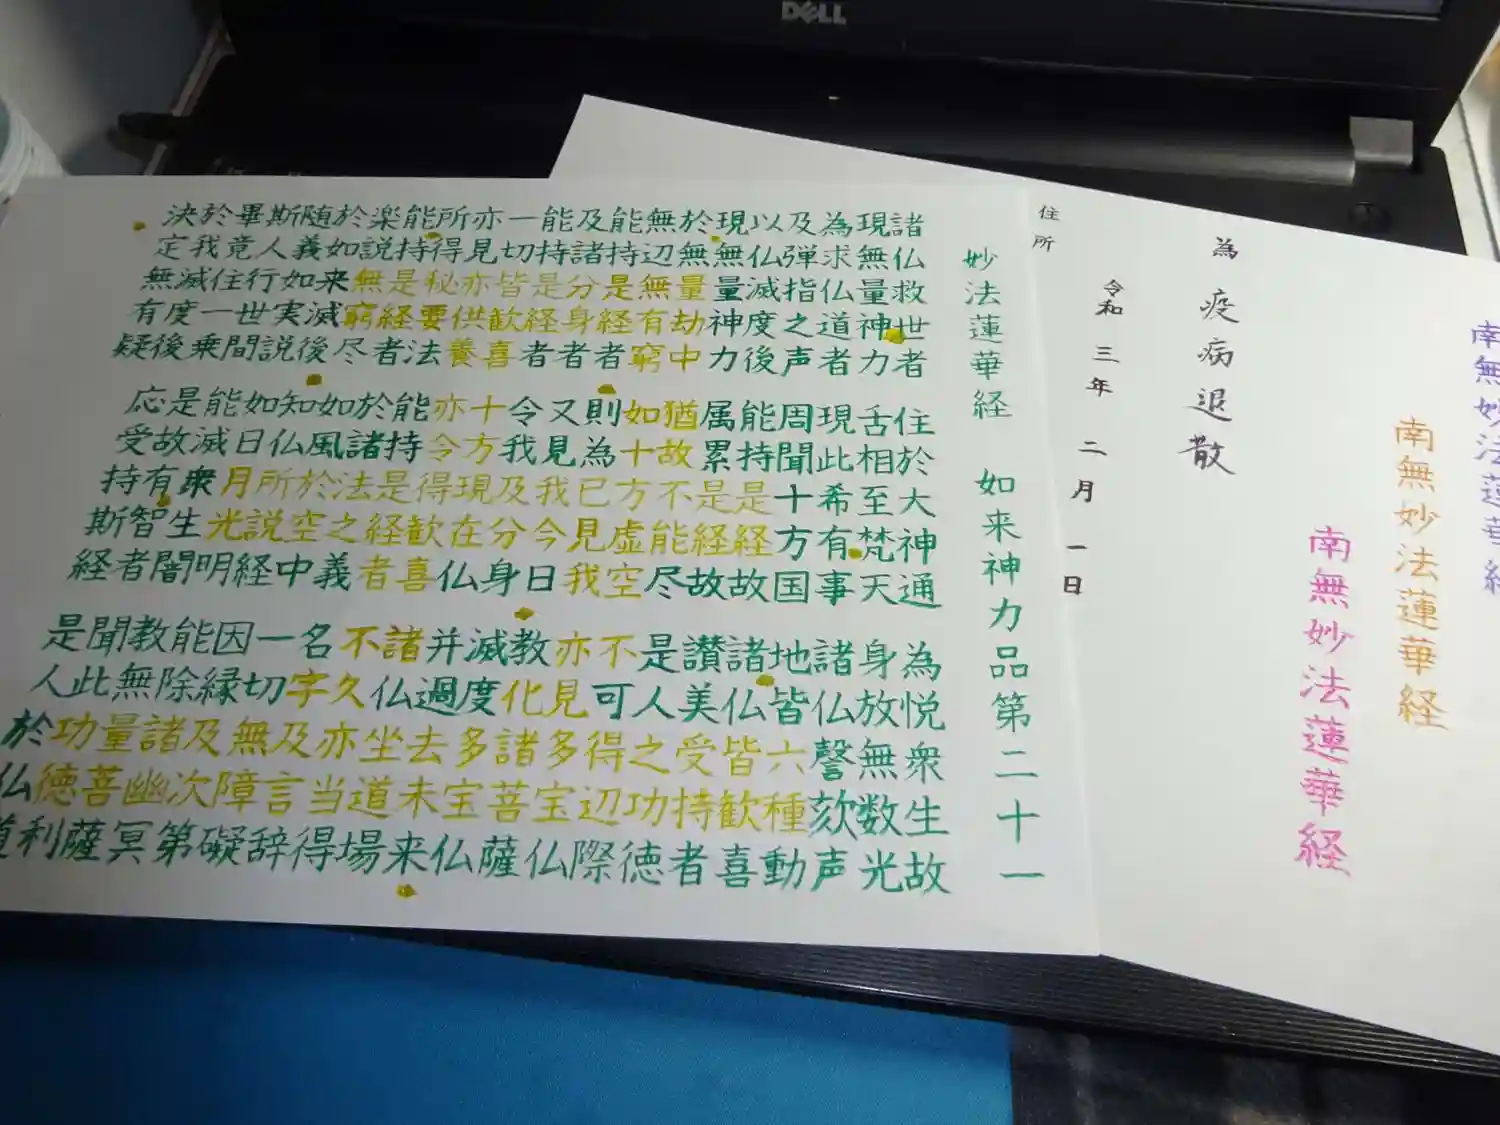 南無妙法蓮華経
南無妙法蓮華経
南無妙法蓮華経
為疫病退散
令和三年二月一日
住所
妙法蓮華経 如来神力品第二十一
諸仏救世者 住於大神通 為悦衆生故
現無量神力 舌相至梵天 身放無数光
為求仏道者 現此希有事 諸仏謦欬声
及弾指之声 周聞十方国 地皆六種動
以仏滅度後 能持是経故 諸仏皆歓喜
現無量神力 属累是経故 讃美受持者
於無量劫中 猶故不能尽 是人之功徳
無辺無有窮 如十方虚空 不可得辺際
能持是経者 則為已見我 亦見多宝仏
及諸分身者 又見我今日 教化諸菩薩
能持是経者 令我及分身 滅度多宝仏
一切皆歓喜 十方現在仏 并過去未来
亦見亦供養 亦令得歓喜 諸仏坐道場
所得秘要法 能持是経者 不久亦当得
能持是経者 於諸法之義 名字及言辞
楽説無窮尽 如風於空中 一切無障礙
於如来滅後 知仏所説経 因縁及次第
随義如実説 如日月光明 能除諸幽冥
斯人行世間 能滅衆生闇 教無量菩薩
畢竟住一乗 是故有智者 聞此功徳利
於我滅度後 応受持斯経 是人於仏道
決定無有疑
DELL